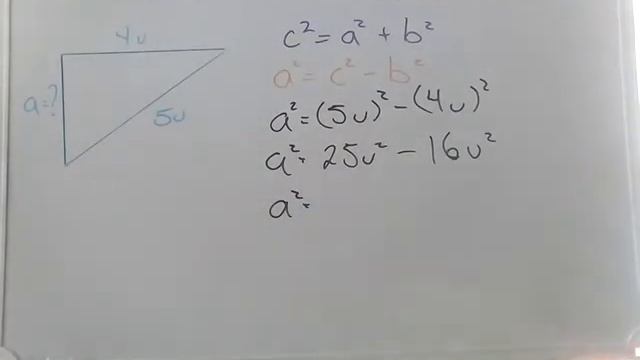 4u
a=?
5u
c² = a² + b²
a² = c² - b²
a² = (5u)² - (4u)²
a² = 25u² - 16u²
a² =